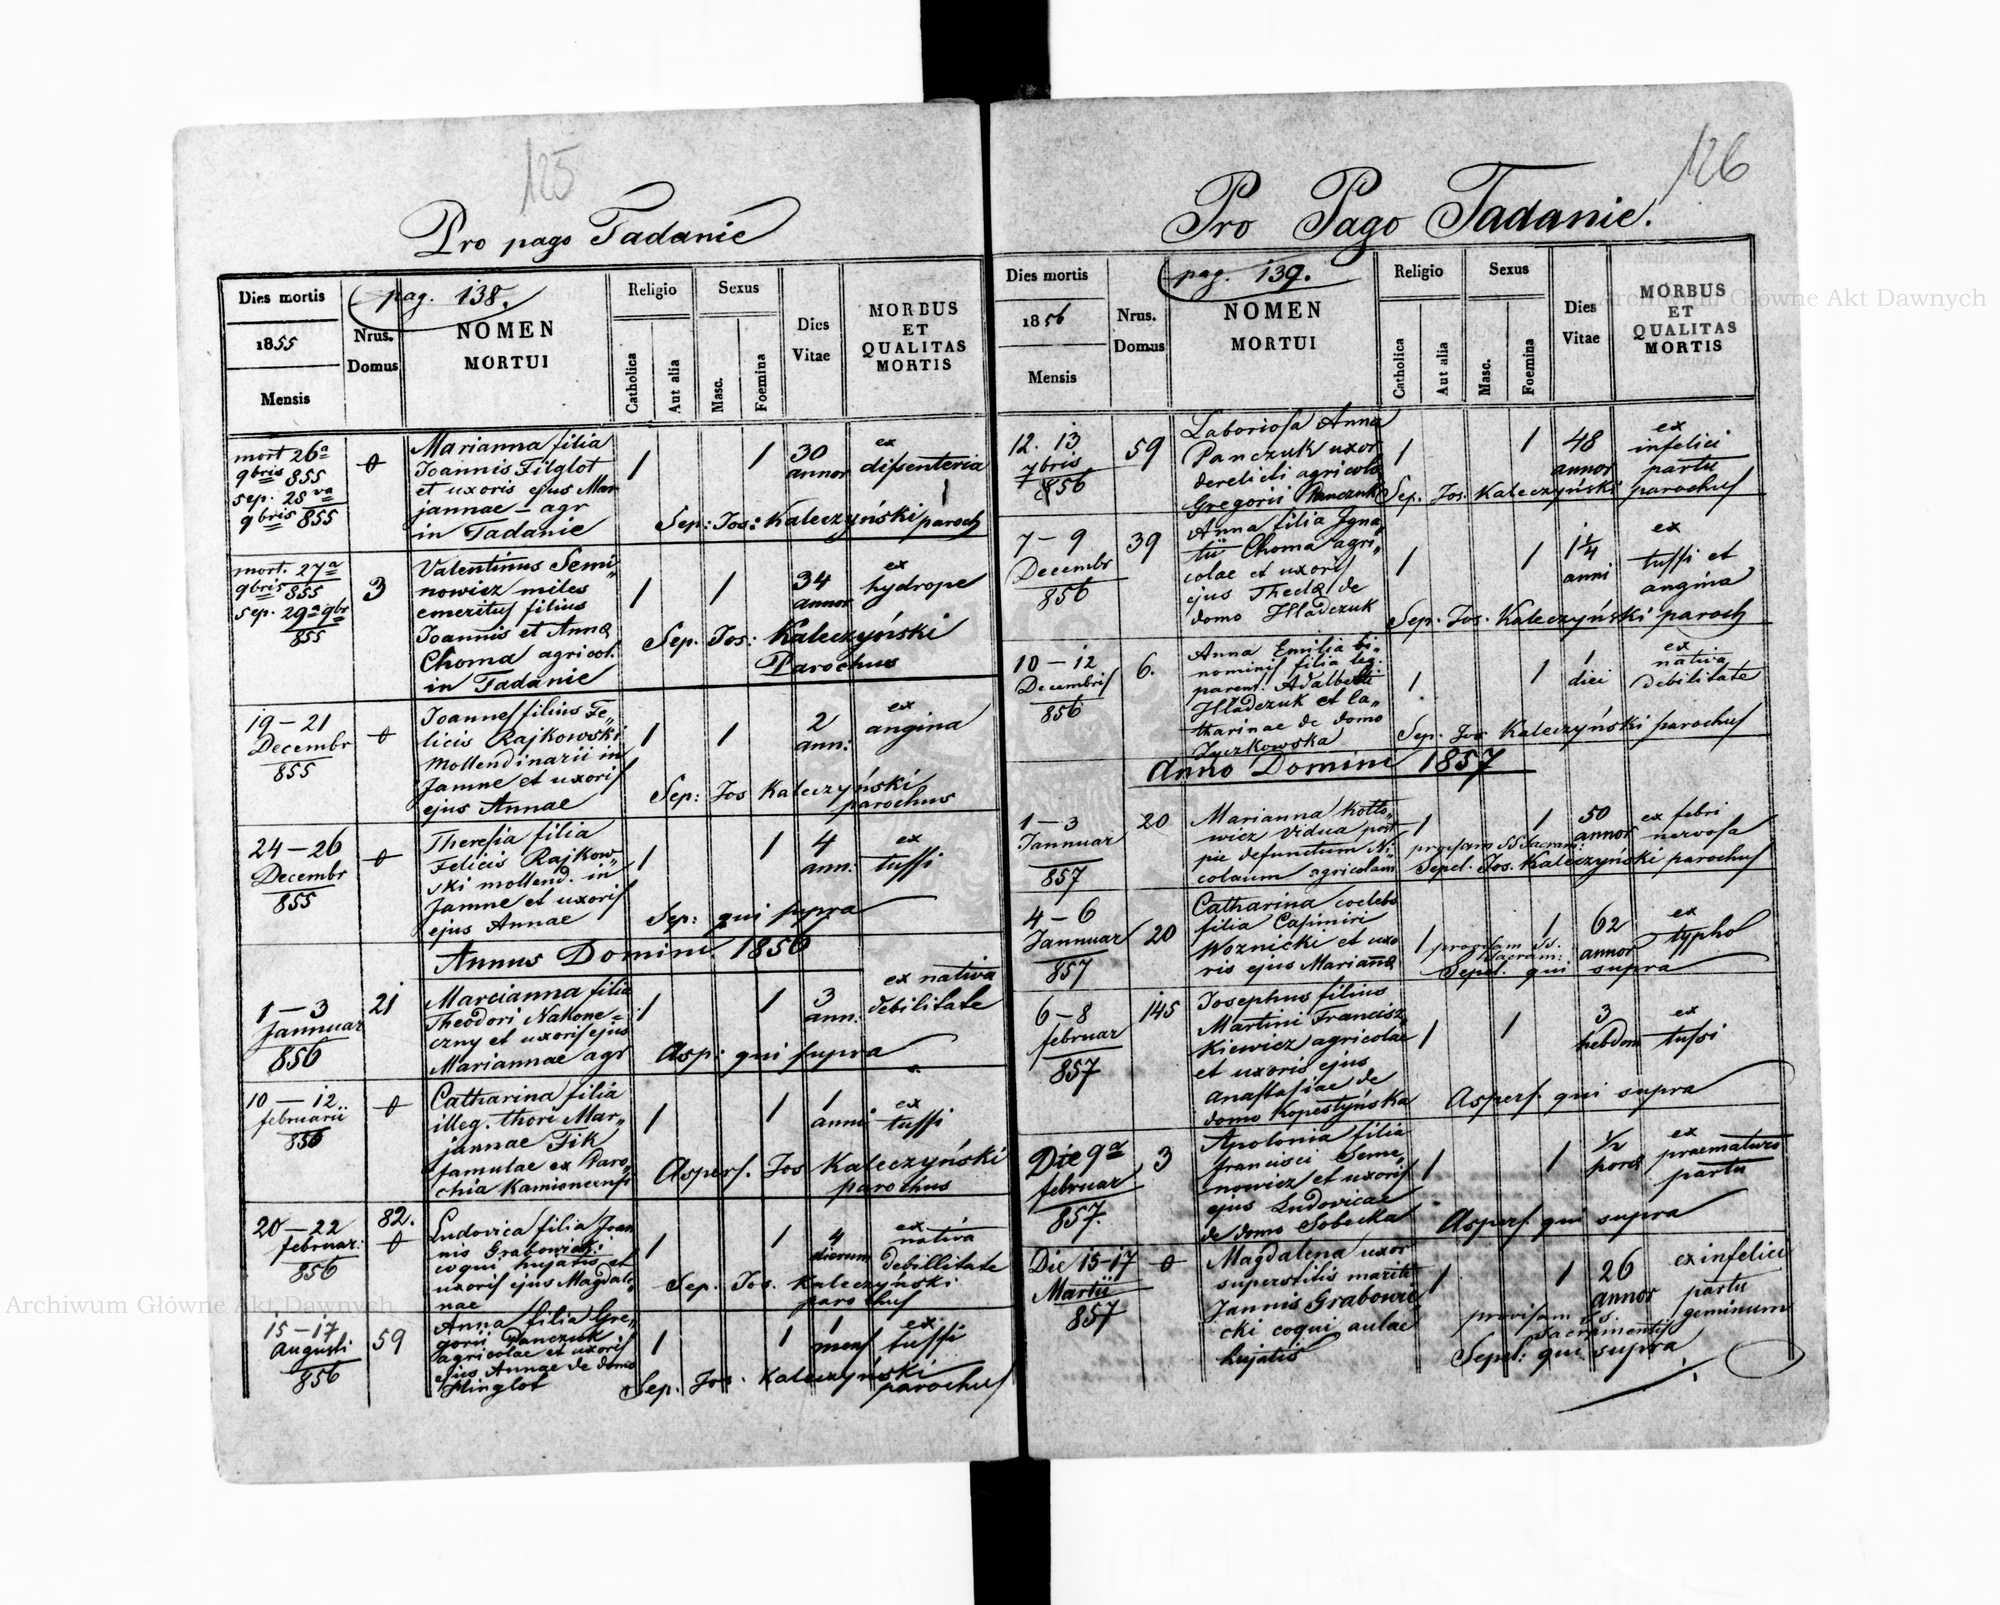 125
Pro pago Tadanie
Dies mortis
1855
Mensis
Nrus.
Domus
pag. 138.
NOMEN
MORTUI
Religio
Catholica
Aut alia
Sexus
Masc.
Foemina
Dies
Vitae
MORBUS
ET
QUALITAS
MORTIS
mort 26a
9bris 855
sep. 28va
9bris 855
0
Marianna filia
Joannis Filglot
et uxoris ejus Mar
jannae – agr
in Tadanie
1
1
30
annor
ex
dissenteria
Sep: Jos: Kaleczyński paroch
mort. 27a
9bris 855
sep. 29a 9br
855
3
Valentinus Semi„
nowicz miles
emeritus filius
Joannis et Anna
Choma agricol.
in Tadanie
1
1
34
annor
ex
hydrope
Sep. Jos: Kaleczyński
Parochus
19 – 21
Decembr
855
0
Joannes filius Fe„
licis Rajkowski
mollendinarii in
Jamne et uxoris
ejus Annae
1
1
2
ann:
ex
angina
Sep: Jos Kaleczyński
parochus
24 – 26
Decembr
855
0
Theresia filia
Felicis Rajkow„
ski mollend. in
Jamne et uxoris
ejus Annae
1
1
4
ann:
ex
tussi
Sep: qui supra
Annus Domini 1856
1 – 3
Jannuar
856
21
Marcianna filia
Theodori Nakone=
czny et uxoris ejus
Mariannae agr
1
1
3
ann:
ex nativa
debilitate
Asp: qui supra
10 – 12
februarii
856
0
Catharina filia
illeg. thori Mar„
jannae Fik
famulae ex Paro„
chia Kamioncensi
1
1
1
anni
ex
tussi
Aspers. Jos Kaleczyński
parochus
20 – 22
februar:
856
82.
0
Ludovica filia Joan
nis Grabowicki
coqui hujatis et
uxoris ejus Magdale„
nae
1
1
4
dierum
ex
nativa
debillitate
Sep. Jos. Kaleczyński
parochus
15 – 17
Augusti
856
59
Anna filia Gre„
gorii Panczuk
agricolae et uxoris
ejus Annae de domo
Hinglot
1
1
1
mens
ex
tussi
Sep. Jos. Kaleczyński
parochus
126
Pro Pago Tadanie.
Dies mortis
1856
Mensis
Nrus.
Domus
pag. 139.
NOMEN
MORTUI
Religio
Catholica
Aut alia
Sexus
Masc.
Foemina
Dies
Vitae
MORBUS
ET
QUALITAS
MORTIS
12. 13
7bris
856
59
Laboriosa Anna
Panczuk uxor
derelicti agricola
Gregorii Panczuk
1
1
48
annor
ex
infelici
partu
Sep. Jos. Kaleczyński parochus
7 – 9
Decembr
856
39
Anna filia Igna„
tii Choma agri„
colae et uxoris
ejus Thecla de
domo Hladczuk
1
1
1 1/4
anni
ex
tussi et
angina
Sep. Jos. Kaleczyński paroch
10 – 12
Decembris
856
6.
Anna Emilia bi„
nominis filia leg.
parent. Adalberti
Hladczuk et Ca„
tharinae de domo
Zyczkowska
1
1
1
diei
ex
nativa
debilitate
Sep. Jos Kaleczyński parochus
Anno Domini 1857
1 – 3
Jannuar
857
20
Marianna Kotto„
wicz vidua post
pie defunctum Ni„
colaum agricolam
1
1
50
annor
ex febri
nervosa
provisam SS Sacram:
Sepel. Jos. Kaleczyński parochus
4 – 6
Jannuar
857
20
Catharina coelebs
filia Casimiri
Woznicki et uxo
ris ejus Marianna
1
1
62
annor
ex
typho
provisam SS.
Sacram:
Sepel. qui supra
6 – 8
februar
857
145
Josephus filius
Martini Francisz„
kiewicz agricolae
et uxoris ejus
Anastasiae de
domo Kopestyńska
1
1
3
hebdom
ex
tussi
Aspers. qui supra
Die 9a
februar
857.
3
Apolonia filia
Francisci Seme„
nowicz et uxoris
ejus Ludovicae
de domo Sobecka
1
1
1/2
horae
ex
praematuro
partu
Aspers. qui supra
Die 15–17
Martii
857
0
Magdalena uxor
superstitis mariti
Jannis Grabowi„
cki coqui aulae
hujatis
1
1
26
annor
ex infelici
partu
geminum
provisam SS.
Sacramentis
Sepel: qui supra
Archiwum Główne Akt Dawnych
Archiwum Główne Akt Dawnych